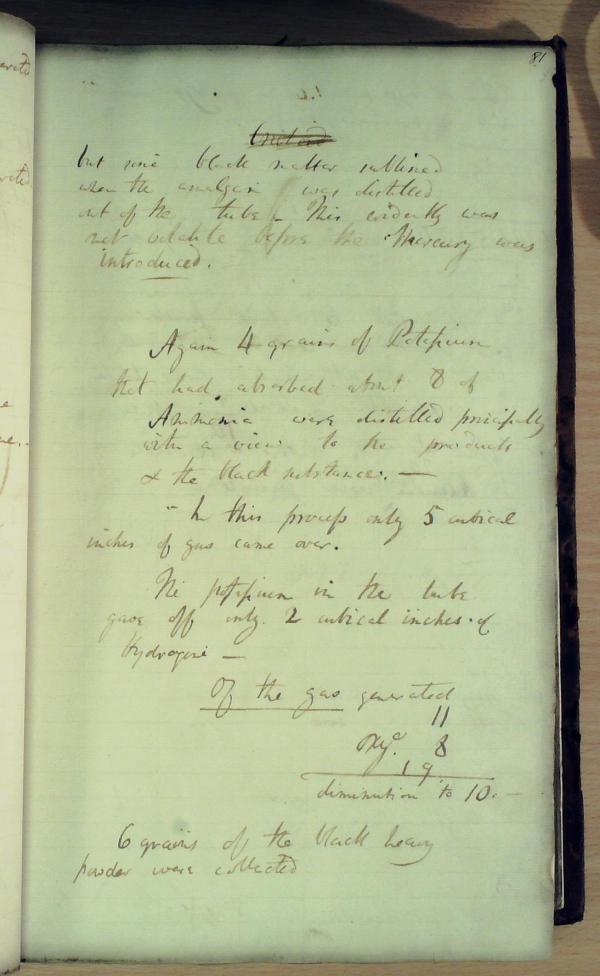 81
but some black matter sublimed
when the amalgam was distilled
out of the tube - This evidently was
not volatile before the Mercury was
introduced.
Again 4 grains of Potassium
that had absorbed about 8 of
Ammonia were distilled principally
with a view to the products
& the black substance. —
- In this process only 5 cubical
inches of gas came over.
The potassium in the tube
gave off only 2 cubical inches of
Hydrogene —
Of the gas generated
11
Oxy. 8
19
diminution to 10. —
6 grains of the black heavy
powder were collected